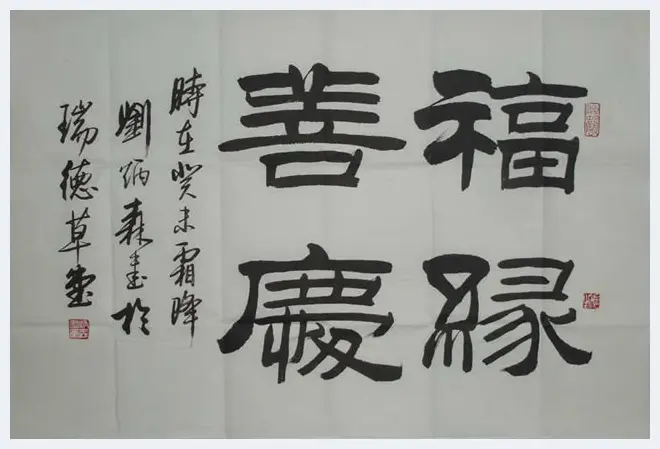 福緣
善慶
時在癸未霜降
劉炳森書於
瑞德草堂